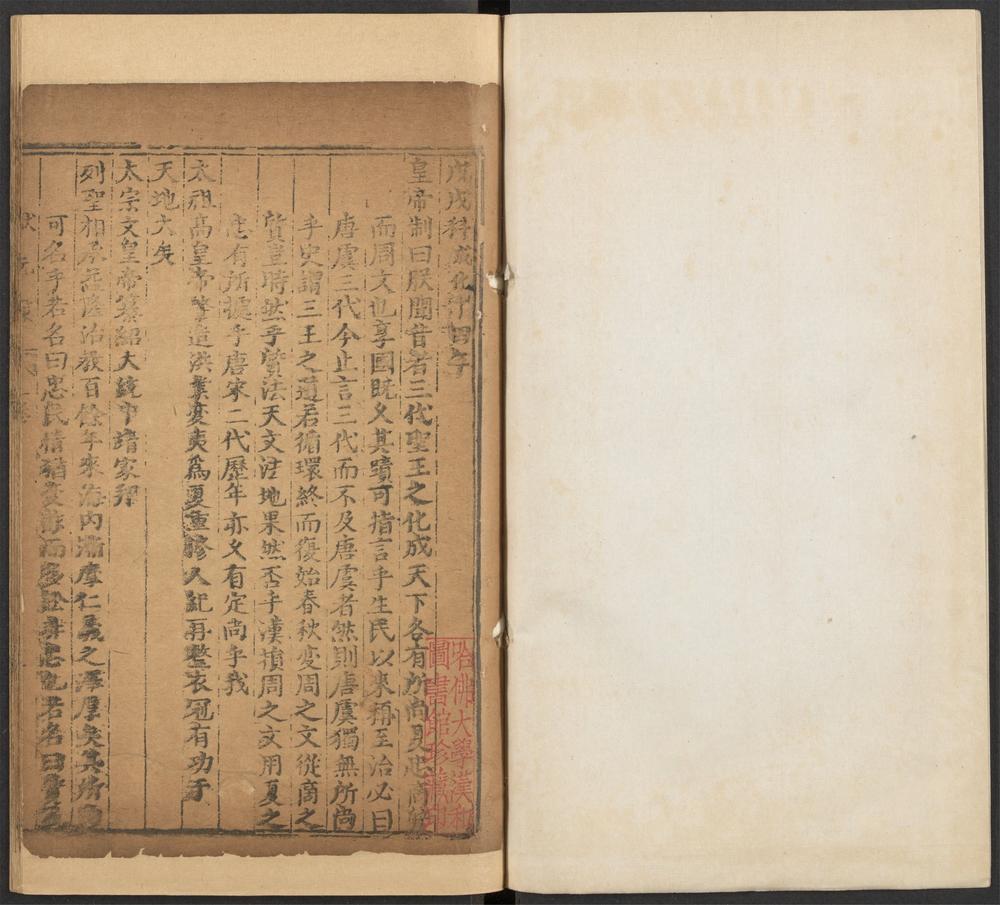 戊戌科成化十四年
皇帝制曰朕聞昔者三代聖王之化成天下各有所尚夏忠商質
而周文也享國既久其蹟可指言乎生民以來稱至治必曰
唐虞三代今止言三代而不及唐虞者然則唐虞獨無所尚
乎史謂三王之道若循環終而復始春秋變周之文從商之
質豈時然乎質法天文法地果然否乎漢損周之文用夏之
忠有所據乎唐宋二代歷年亦久有定尚乎我
太祖高皇帝肇造洪業變夷爲夏重修人紀再整衣冠有功于
天地大矣
太宗文皇帝纂紹大統中靖家邦
列聖相承益隆治教百餘年來海內漸摩仁義之澤厚矣其所尚
可名乎若名曰忠民情猶變詐而多訟非忠也若名曰質
哈佛大學漢和
圖書館珍藏印